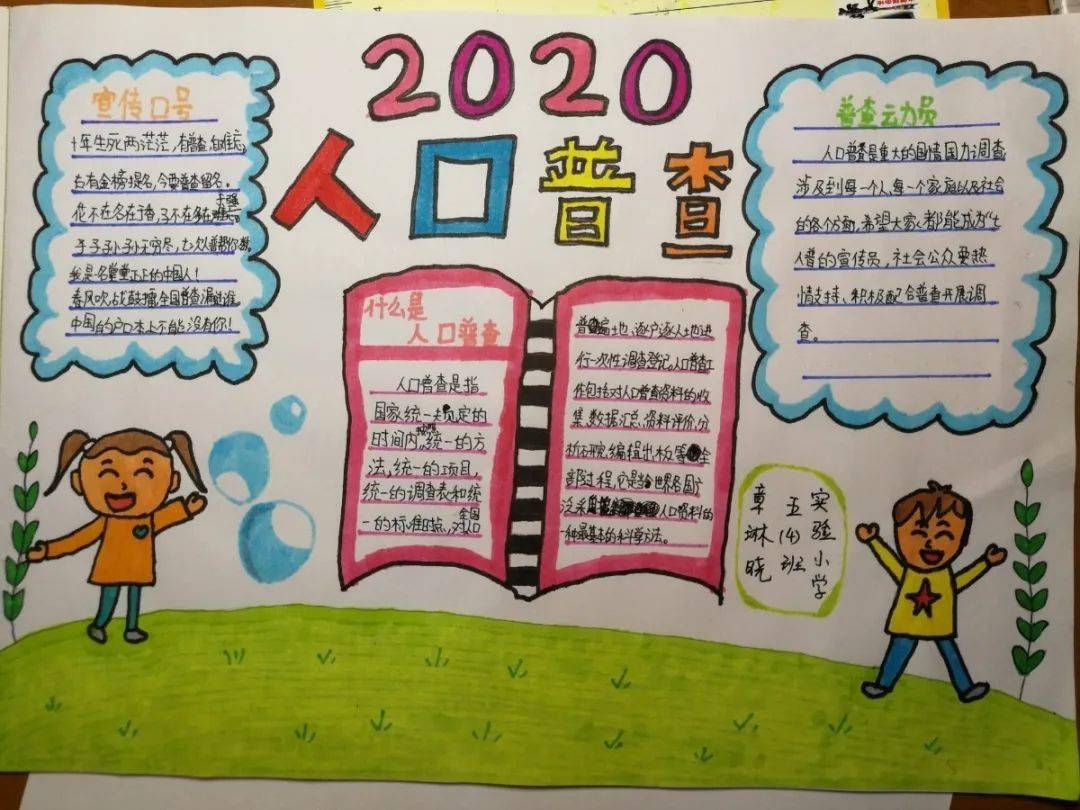 2020
人口普查
宣传口号
十年生死两茫茫,有普查,自难忘,
古有金榜提名,今要普查留名。
花不在多在香,子不在多在
子子孙孙无穷尽,七次普帮你数
我是名堂堂正正的中国人!
春风吹,战鼓擂,全国普查漏谁
中国的户口本上不能没有你!
什么是
人口普查
人口普查是指
国家统一规定的
时间内,统一的方
法,统一的项目,
统一的调查表和统
一的标准时点,对全国人口
普遍地、逐户逐人地进
行一次性调查登记。人口普查工
作包括对人口普查资料的收
集、数据汇总、资料评价、分
析研究、编辑出板等全
部过程,它是当世界各国广
泛采人口资料的
一种最基本的科学方法。
普查云力员
人口普查是重大的国情国力调查,
涉及到每一个人,每一个家庭以及社会
的各个方面,希望大家都能成为“七
人普的宣传员,社会公众要热
情支持、积极配合普查开展调
查。
实验小学
五(4)班
覃琳晓